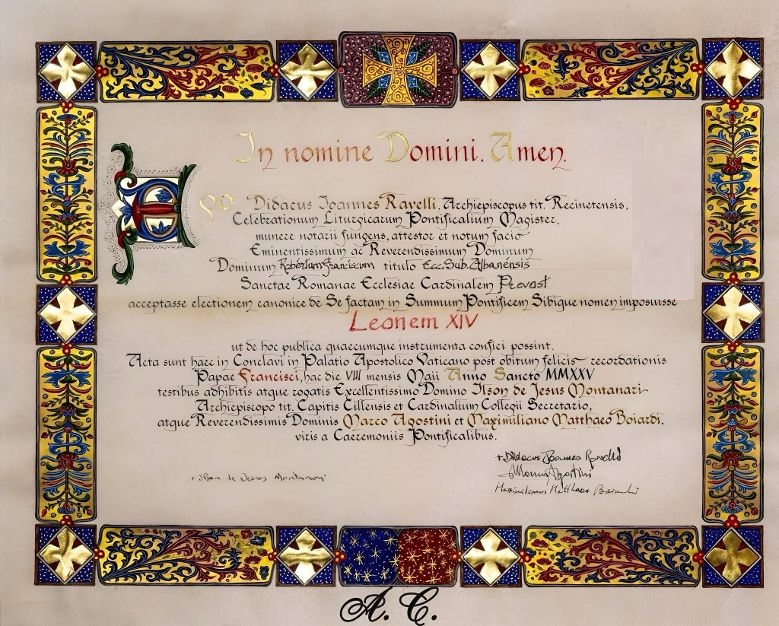 In nomine Domini. Amen.
Ego Didacus Ioannes Ravelli, Archiepiscopus tit. Recinetensis,
Celebrationum Liturgicarum Pontificalium Magister,
munere notarii fungens, attestor et notum facio
Eminentissimum ac Reverendissimum Dominum
Dominum Robertum Franciscum titulo Ecc. Sub. Albanensis
Sanctae Romanae Ecclesiae Cardinalem Prevost
acceptasse electionem canonice de Se factam in Summum Pontificem Sibique nomen imposuisse
Leonem XIV
ut de hoc publica quaecumque instrumenta confici possint.
Acta sunt haec in Conclavi in Palatio Apostolico Vaticano post obitum felicis recordationis
Papae Francisci, hac die VIII mensis Maii Anno Sancto MMXXV
testibus adhibitis atque rogatis Excellentissimo Domino Ilson de Jesus Montanari
Archiepiscopo tit. Capitis Cillensis et Cardinalium Collegii Secretario,
atque Reverendissimis Dominis Marco Agostini et Maximiliano Matthaeo Boiardi,
viris a Caeremoniis Pontificalibus.
+ Didacus Ioannes Ravelli
+ Ilson de Jesus Montanari
Marcus Agostini
Maximilianus Matthaeus Boiardi
A. C.